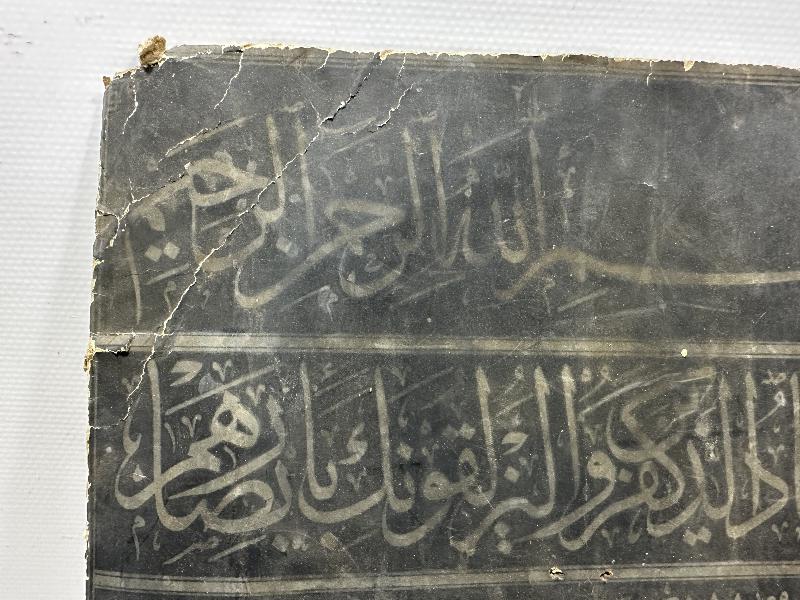 بسم الله الرحمن الرحيم
اد الذين كفروا ليزلقونك بابصارهم